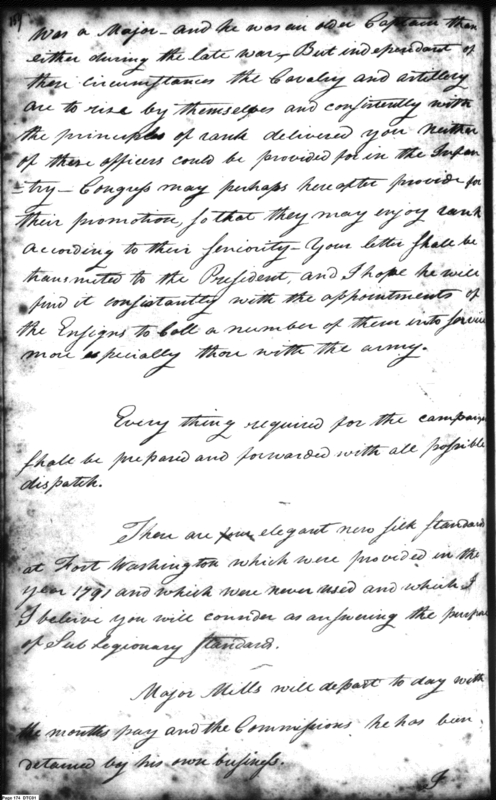 was a Major - and he was an older Captain than
either during the late war, - But independant of
these circumstances the Cavalry and artillery
are to rise by themselves and consistently with
the principles of rank delivered you neither
of these officers could be provided for in the Infan
=try - Congress may perhaps hereafter provide for
their promotion, so that they may enjoy rank
according to their seniority - Your letter shall be
transmitted to the President, and I hope he will
find it consistantly with the appointments of
the Ensigns to call a number of them into service
more especially those with the army.
Every thing required for the campaign
shall be prepared and forwarded with all possible
dispatch.
There are four elegant new silk standards
at Fort Washington which were provided in the
year 1791 and which were never used and which I
I beleive you will consider as answering the purpose
of Sub Legionary standards.
Major Mills will depart to day with
the months pay and the Commissions. he has been
detained by his own business.
Page 174 DTC01